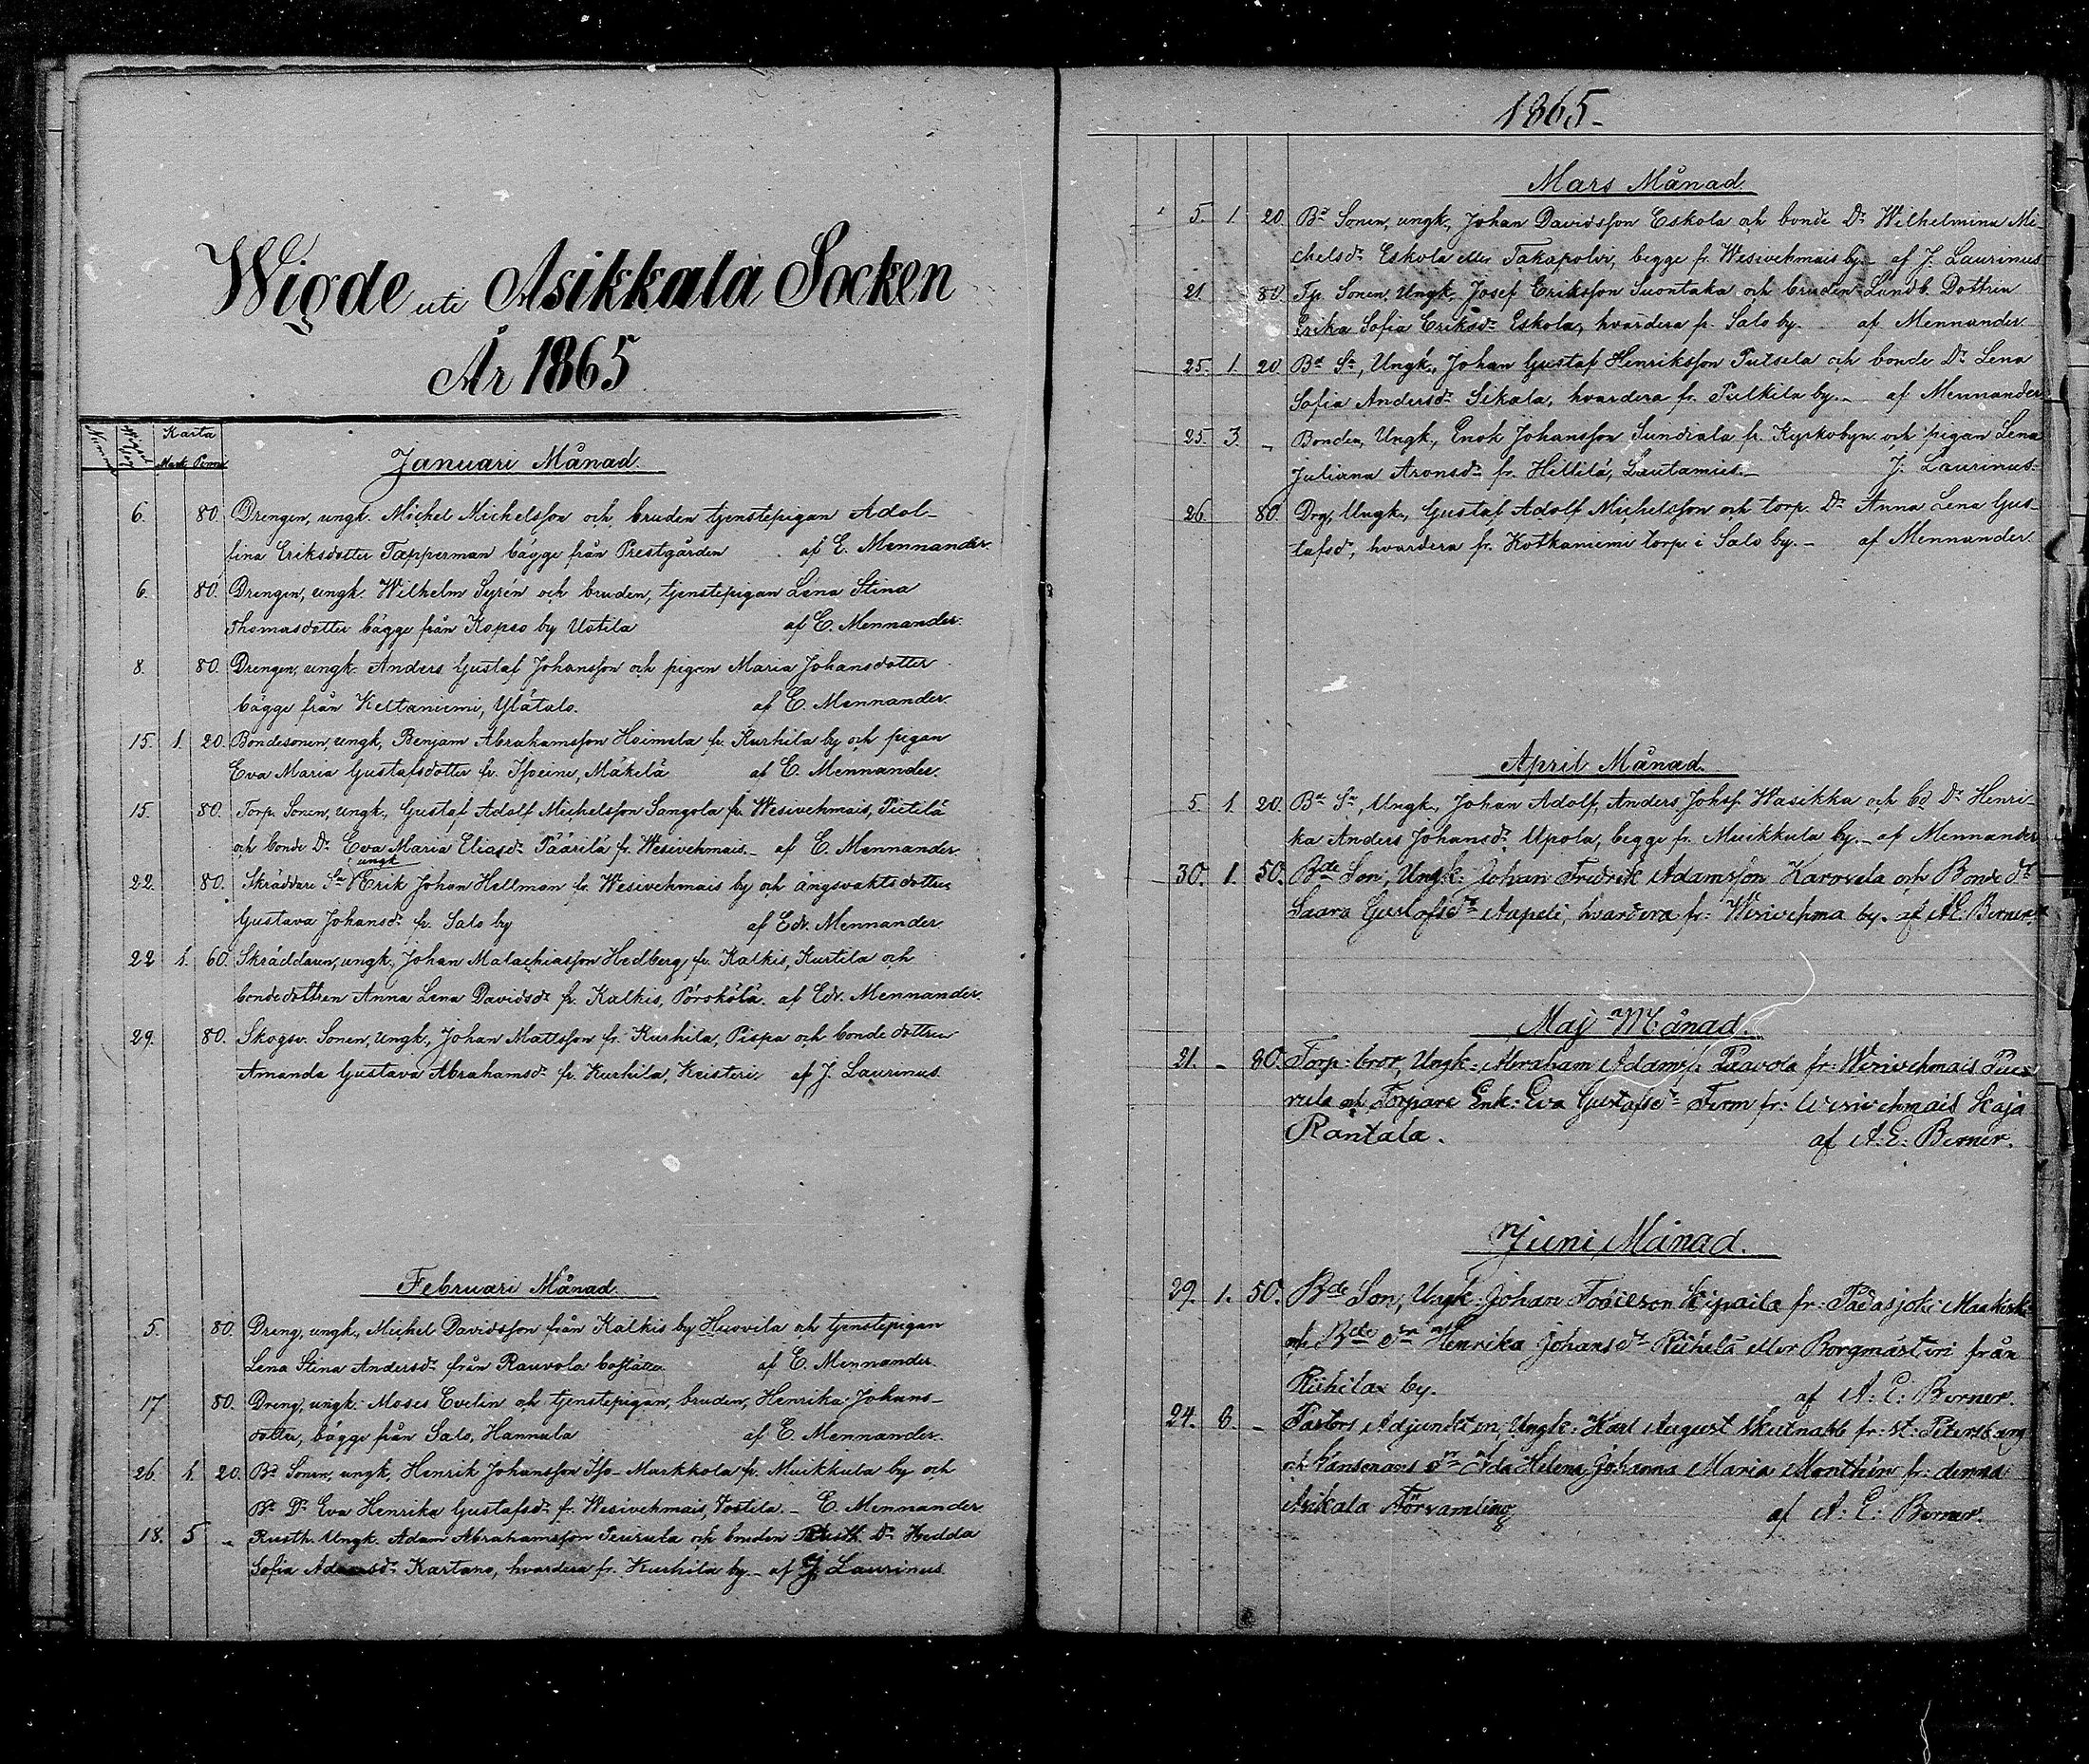 Wigde uti Asikkala Socken
År 1865
Karta
Mark Penni
Januari Månad
6. 80. Drengen, ungk. Michel Michelsson och bruden tjenstepigan Adol-
fina Eriksdotter Tapperman bägge från Prestgården af E. Mennander.
6. 80. Drengen, ungk. Wilhelm Syrén och bruden, tjenstepigan Lena Stina
Thomasdotter bägge från Kopso by Uotila af E. Mennander.
8. 80. Drengen, ungk. Anders Gustaf Johansson och pigan Maria Johansdotter
bägge från Keltaniemi, Ylätalo. af E. Mennander.
15. 1. 20. Bondesonen, ungk, Benjam Abrahamsson Heimola fr. Kurhila by och pigan
Eva Maria Gustafsdotter fr. Mäkelä af E. Mennander.
15. 80. Torp. Sonen, ungk., Gustaf Adolf Michelsson Sangola fr. Wesivehmais, Pietilä
och bonde Dr. Eva Maria Eliasdr Päärilä fr. Wesivehmais. af E. Mennander.
ungk
22. 80. Skräddare Sn Erik Johan Hellman fr. Wesivehmais by och ängsvaktsdotter
Gustava Johansdr. fr. Salo by af Edv. Mennander.
22 1. 60. Skräddaren, ungk., Johan Malachiasson Hedberg fr. Kalkis, Kurtila och
bondedottren Anna Lena Davidsdr fr. Kalkis, af Edv. Mennander.
29. 80. Skogsv. Sonen, ungk., Johan Mattsson fr. Kurhila, Pispa och bonde dottren
Amanda Gustava Abrahamsdr fr. Kurhila, Keisteri af J. Laurinus.
Februari Månad
5. 80. Dreng, ungk., Michel Davidsson från Kalkis by Huovila och tjenstepigan
Lena Stina Andersdr. från Rauvola af E. Mennander.
17 80. Dreng, ungk. Moses Evelin och tjenstepigan, bruden, Henrika Johans-
dotter, bägge från Salo, Hannula af E. Mennander.
26. 1. 20. Bd Sonen, ungk, Henrik Johansson Iso-Markkola fr. Muikkula by och
Bd Dr. Eva Henrika Gustafsdr. fr. Wesivehmais, E. Mennander
18. 5 - Rusth. Ungk. Adam Abrahamsson Peurula och bruden Rusth. Dr. Hedda
Sofia Adamsdr. Kartano, hvardera fr. Kurhila by. af J. Laurinus.
1865-
Mars Månad
5. 1. 20. Bd Sonen, ungk., Johan Davidsson Eskola och bonde Dr. Wilhelmina Mi-
chelsdr. Eskola eller Takapolvi, begge fr. Wesivehmais by. af J. Laurinus
21 80. Tp. Sonen, Ungk., Josef Eriksson Suontaka och bruden Landb. Dottren
Erika Sofia Eriksdr. Eskola, hvardera fr. Salo by. af Mennander.
25. 1. 20 Bd Sn, Ungk., Johan Gustaf Henriksson Putsela och bonde Dr. Lena
Sofia Andersdr. Sikala, hvardera fr. Pulkila by. - af Mennander
25. 3. - Bonden, Ungk., Enok Johansson Sundiala fr. Kyrkobyn och pigan Lena
Juliana Aronsdr. fr. Hillilä, Lautamies. - J. Laurinus.
26 80. Drg, Ungk., Gustaf Adolf Michelsson och torp. Dr. Anna Lena Gus-
tafsdr, hvardera fr. Kotkaniemi torp i Salo by. - af Mennander.
April Månad.
5. 1. 20. Bd Sn, Ungk., Johan Adolf, Anders Johss. Wasikka och bd Dr. Henri-
ka Anders Johansdr. Upola, begge fr. Muikkula by. - af Mennander
30. 1. 50. Bde Son, Ungk: Johan Fredrik Adamsson Karovela och Bonde dr
Saara Gustafsdr Aapeli, hvardera fr: Wesivehma by. af A E. Berner.
Maj Månad.
21. - 80. Torp: bror, Ungk: Abraham Adamss: Paavola fr: Wesivehmais Peu-
rula och Torpare Enk: Eva Gustafsdr Ferm fr: Wesivehmais Kaja
Rantala. af A. E: Berner.
Juni Månad.
29. 1. 50. Bde Son, Ungk: Johan fr: Padasjoki
och Bde Henrika Johansdr Riihelä eller Borgmästeri från
by. af A: E: Berner.
24. 8. - Pastors Adjunkten, Ungk: Karl August Skutnabb fr: St: Petersburg
och Ida Helena Johanna Maria Monthén fr: denna
Asikala Församling af A: E: Berner.